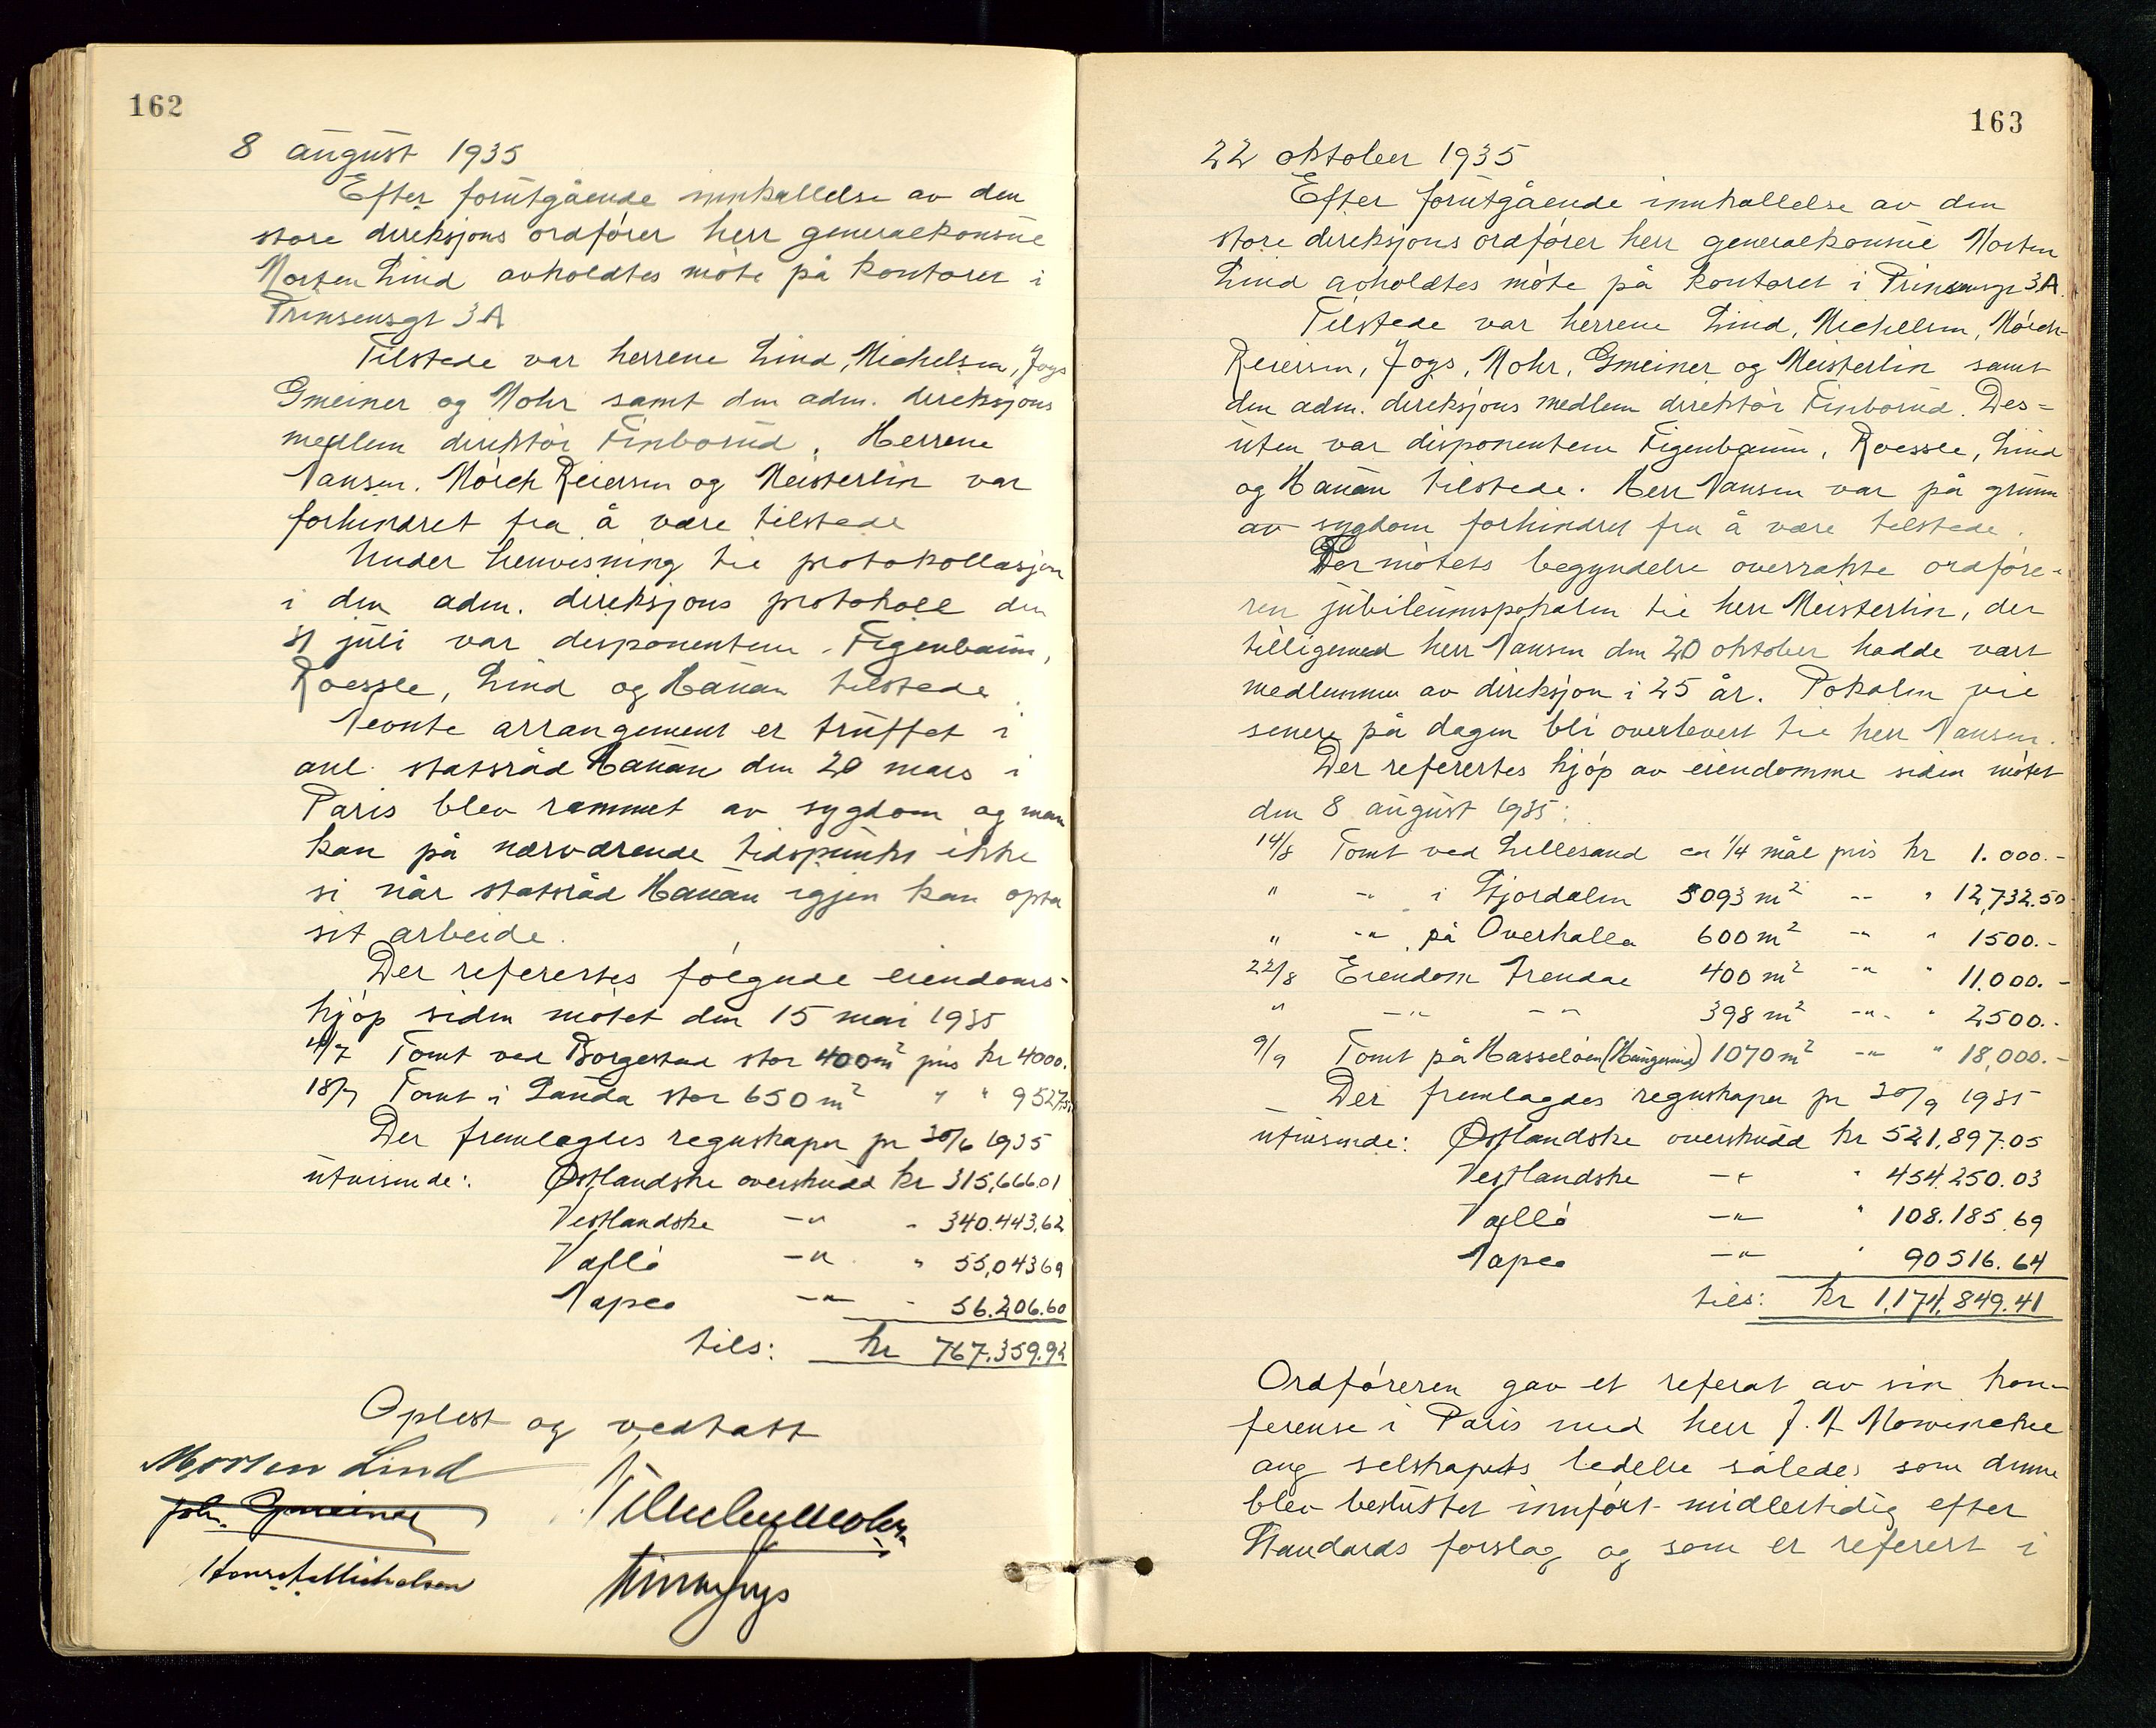 162
8 august 1935
Efter forutgående innkallelse av den
store direksjons ordfører herr generalkonsul
Morten Lind avholdtes møte på kontoret i
Prinsensgt 3A
Tilstede var herrene Lind, Michelsen, Joys
Gmeiner og Mohr samt den adm. direksjons
medlem direktør Finborud. Herrene
Nansen, Mørch Reiersen og Meisterlin var
forhindret fra å være tilstede
Under henvisning til protokollasjon
i den adm. direksjons protokoll den
31 juli var disponentene Figenbaum,
Roessle, Lind og Hauan tilstede.
arrangement er truffet i
anl. statsråd Hauan den 20 mars i
Paris blev rammet av sygdom og man
kan på nærværende tidspunkt ikke
si når statsråd Hauan igjen kan opta
sit arbeide.
Der refertes følgende eiendoms-
kjøp siden møtet den 15 mai 1935
4/7 Tomt ved Borgestad stor 400 m² pris kr 4000.
18/7 Tomt i Sauda stor 650 m² " " 9527,50
Der fremlagdes regnskaper pr 30/6 1935
utvisende: Østlandske overskudd kr 315,666.01
Vestlandske -"- " 340.443,62
Vallø -"- " 55,043 69
Napco -"- " 56.206.60
tils: kr 767.359.92
Oplest og vedtatt
Morten Lind
Joh. Gmeiner
Vilhelm Mohr
Konrad Michelsen
Joys
163
22 oktober 1935
Efter forutgående innkallelse av den
store direksjons ordfører herr generalkonsul Morten
Lind avholdtes møte på kontoret i Prinsensgt 3A.
Tilstede var herrene Lind, Michelsen, Mørch
Reiersen, Joys, Mohr, Gmeiner og Meisterlin samt
den adm. direksjons medlem direktør Finborud. Des=
uten var disponentene Figenbaum, Roessle, Lind
og Hauan tilstede. Herr Nansen var på grunn
av sygdom forhindret fra å være tilstede.
Ved møtets begyndelse overrakte ordføre-
ren jubileumspokalen til herr Meisterlin, der
tilligemed herr Nansen den 20 oktober hadde vært
medlemmer av direksjon i 25 år. Pokalen vil
senere på dagen bli overlevert til herr Nansen.
Der refertes kjøp av eiendomme siden møtet
den 8 august 1935:
14/8 Tomt ved Lillesand ca 1/4 mål pris kr 1.000.-
" -"- i Stjordalen 5093 m² -"- " 12,732.50
" -"- på Overhalla 600 m² -"- " 1500.-
22/8 Eiendom Arendal 400 m² -"- " 11.000.-
" -"- -"- 398 m² -"- " 2500.-
9/9 Tomt på Hasseløen (Haugesund) 1070 m² -"- " 18,000.-
Der fremlagdes regnskaper pr 30/9 1935
utvisende: Østlandske overskudd kr 521,897.05
Vestlandske -"- " 454.250.03
Vallø -"- " 108.185.69
Napco -"- " 90 516.64
tils: kr 1,174,849.41
Ordføreren gav et referat av sin kon-
ferense i Paris med herr J. A Mowinckel
ang selskapets ledelse således som denne
blev besluttet innført midlertidig efter
Standards forslag og som er referert i